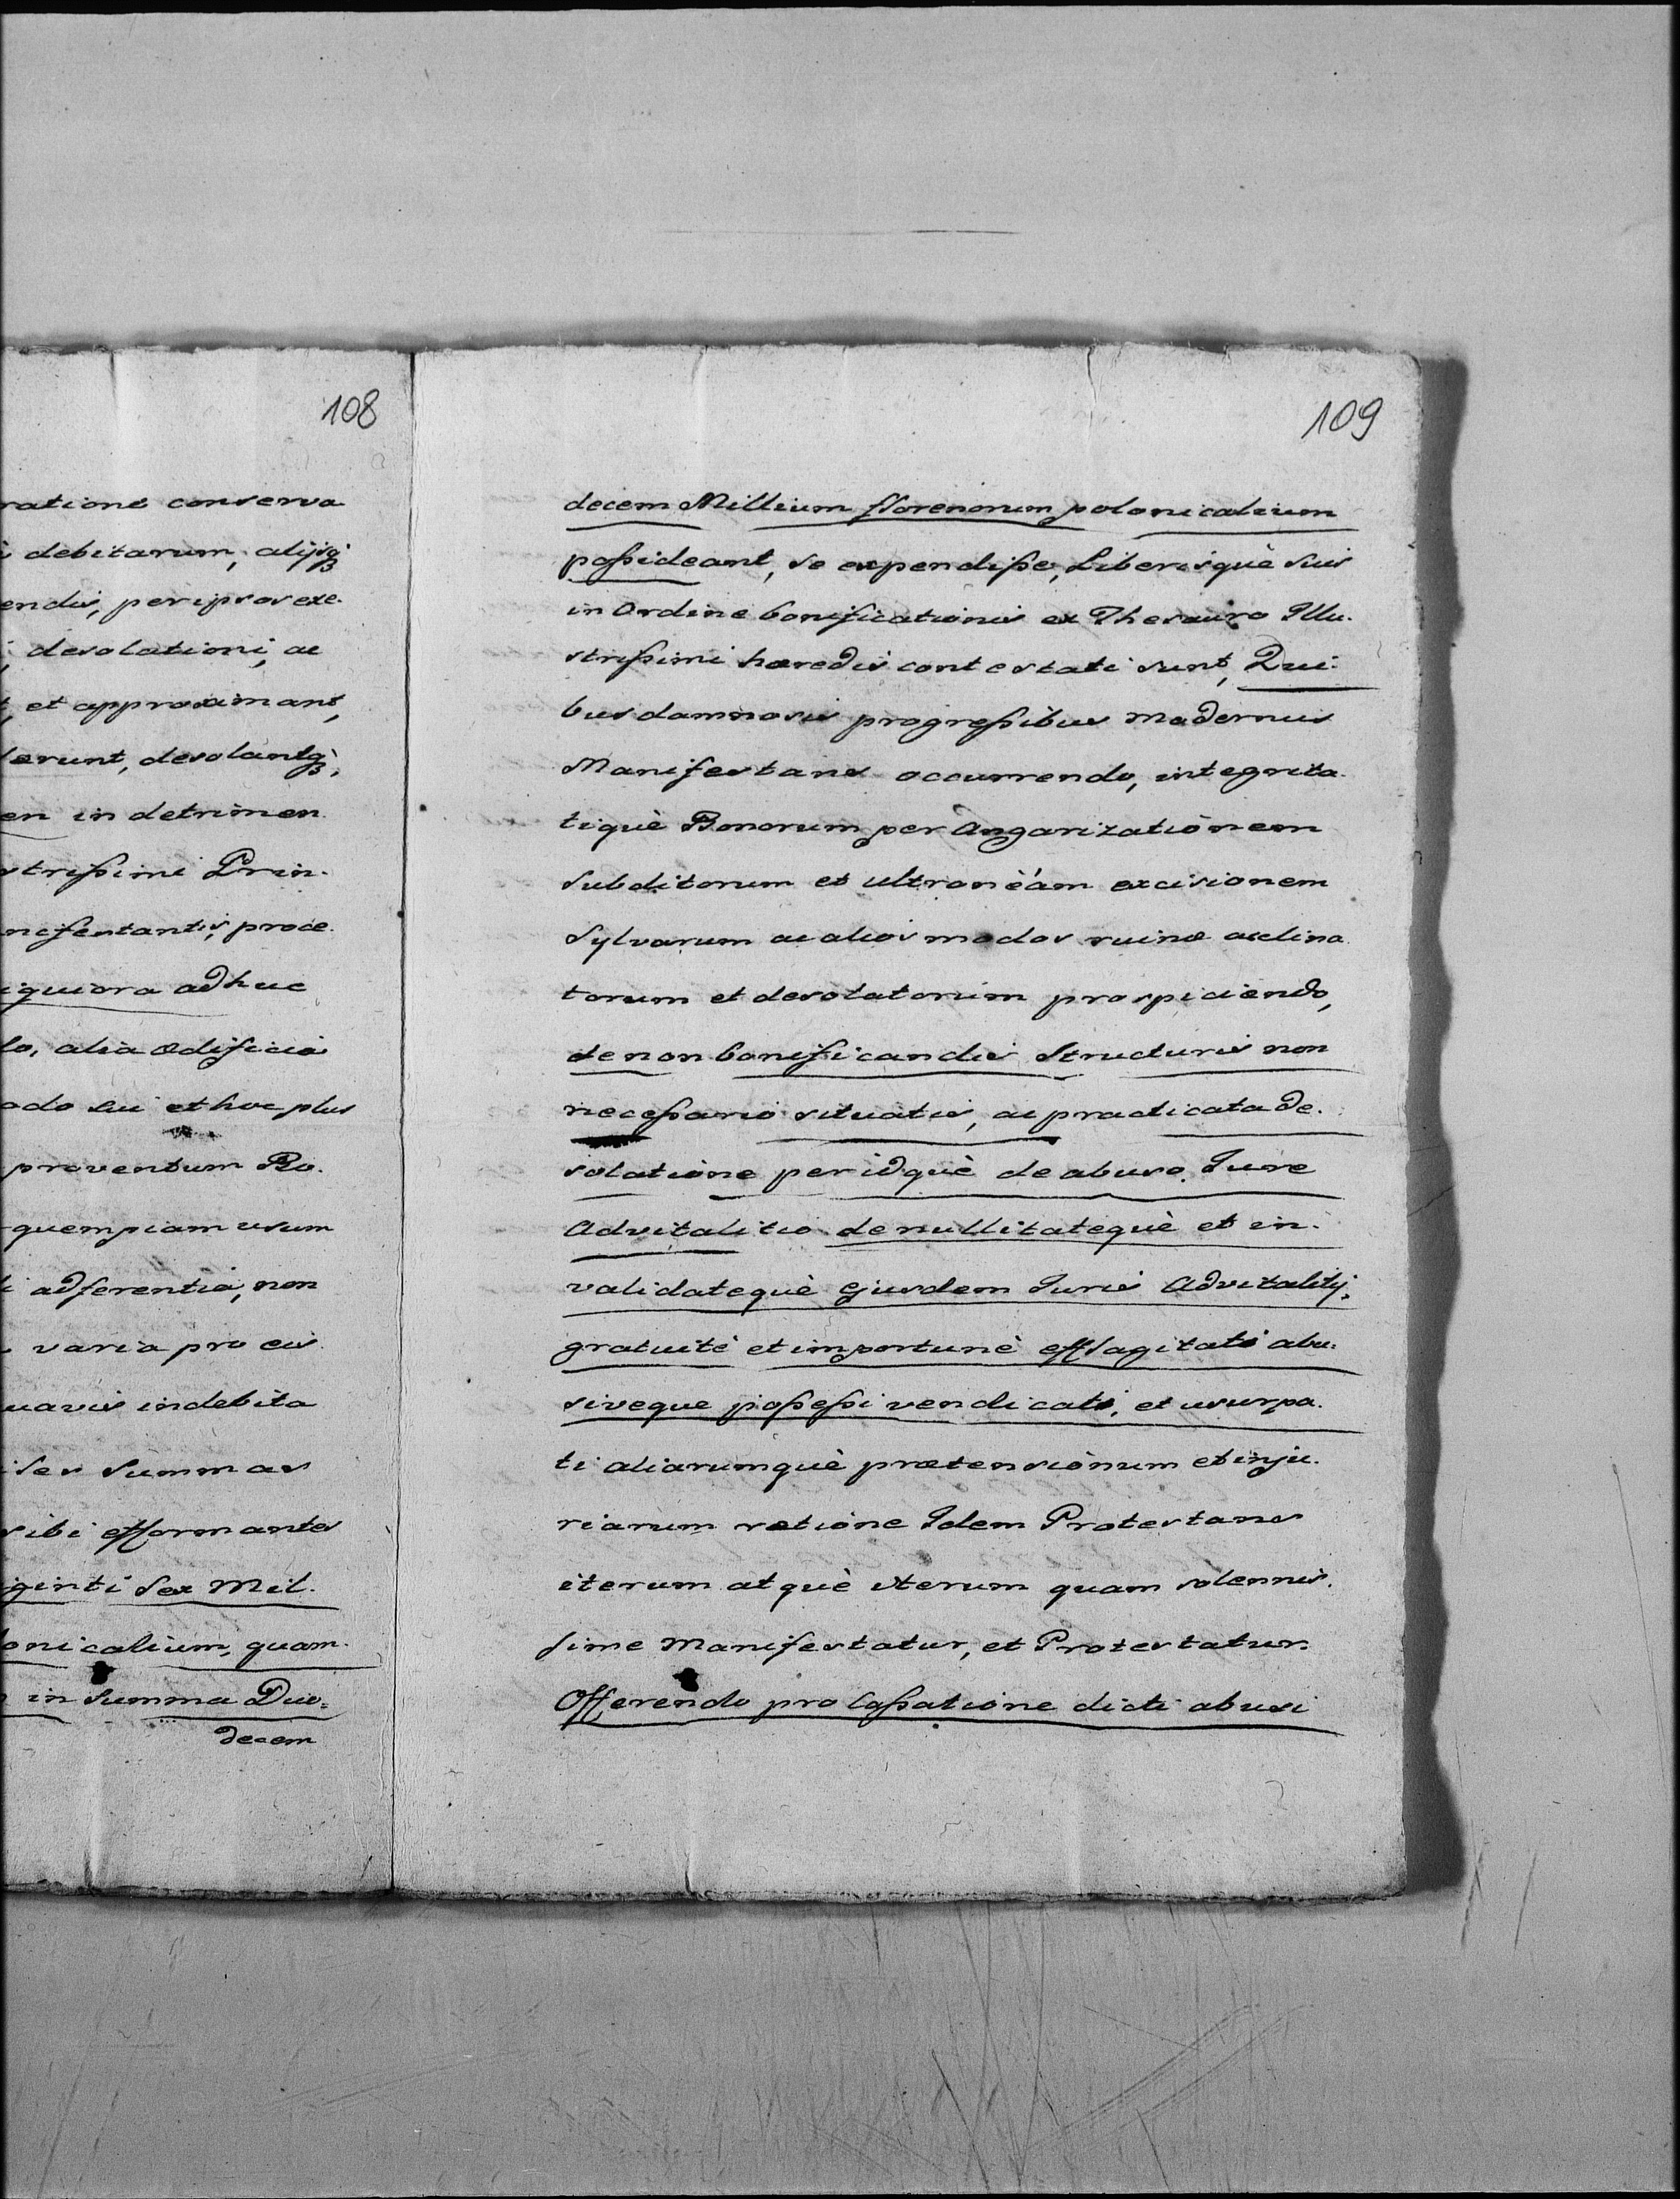 108
ratione conserva
debitarum, alijsq;
endis, per ipsos exe.
desolationi, ac
et approximant,
erunt, desolantq;,
en in detrimen
strissimi Prin.
nifestantis, proce.
iquiora adhuc
lo, alia ædificia
odo sui et hoc plus
proventum Bo.
quempiam usum
adferentia, non
varia pro eis
uavis indebita
Summas
sibi efformantes
ginti Sex Mil.
onicalium, quam.
in Summa Duo=
decem
109
decem Millium florenorum polonicalium
possideant, se expendisse, Liberisquè suis
in Ordine bonificationis ex Thesauro Illu.
strissimi hæredis contestati sunt, Qui.
bus damnosis progressibus modernus
Manifestans occurrendo, integrita.
tiquè Bonorum per Angarizationem
Subditorum et ultronèam excisionem
Sylvarum ac alios modos ruinæ acclina
torum et desolatorum prospiciendo,
de non bonificandis Structuris non
necessario situatis, ac practicata de.
solatione per idquè de abuso Jure
Advitalitio de nullitatequè et in.
validatequè Ejusdem Juris Advitalitij.
gratuitè et importunè efflagitati abu.
siveque possessi vendicati, et usurpa.
ti aliarumquè prætensionum et inju.
riarum ratione Idem Protestans
iterum atquè iterum quam solennis.
sime Manifestatur, et Protestatur.
Offerendo pro Cassatione dicti abusi